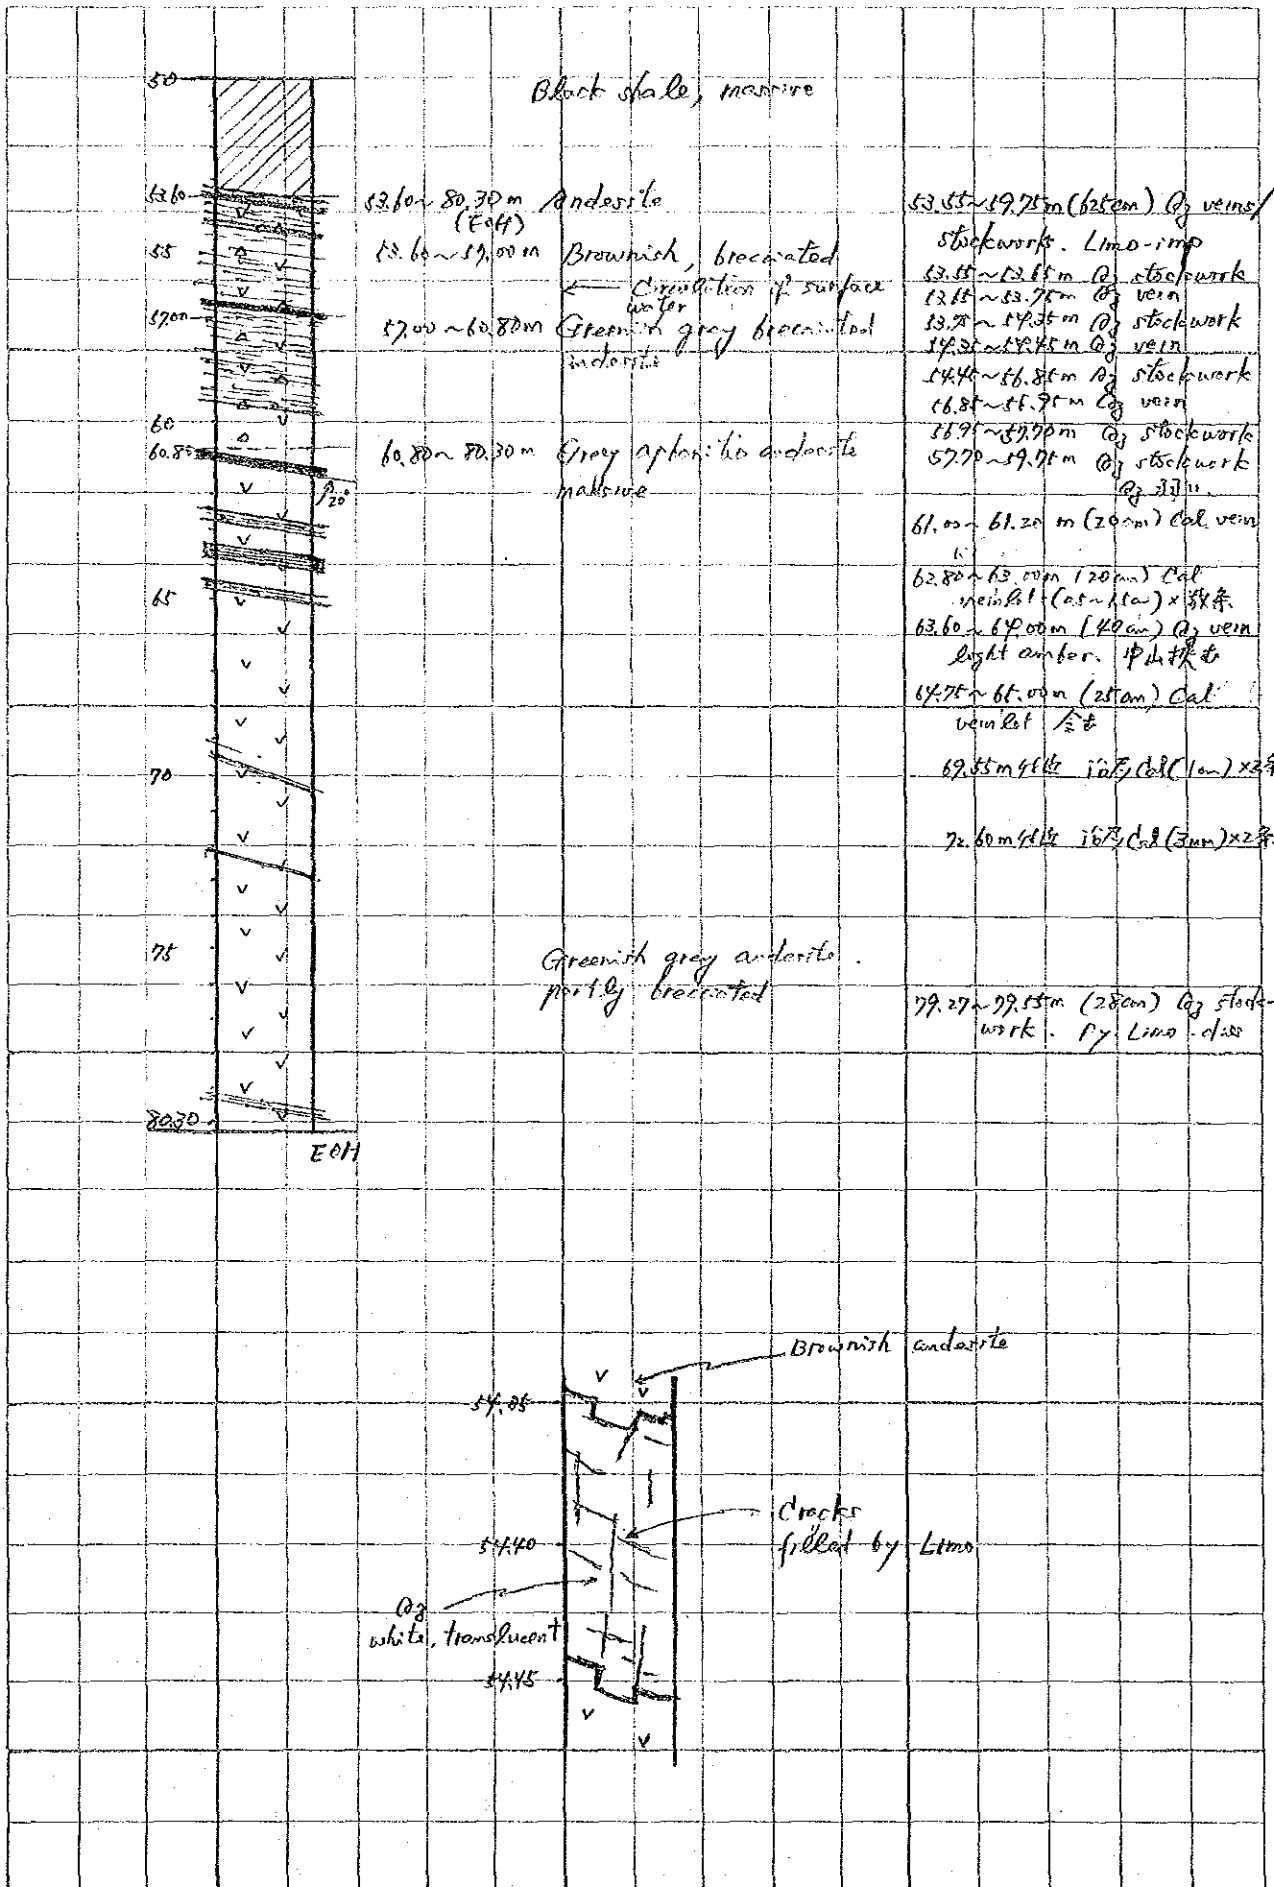 50
Black shale, massive
53.60
53.60~80.30m Andesite
(EOH)
55
53.60~57.00m Brownish, brecciated
← Circulation of surface
water
57.00
57.00~60.80m Greenish grey brecciated
andesite
60
60.80
60.80~80.30m Grey aphanitic andesite
massive
20°
65
70
75
Greenish grey andesite.
partly brecciated
80.30
EOH
53.55~59.75m (625cm) Qz veins/
stockworks. Limo-imp
53.55~53.65m Qz stockwork
53.65~53.75m Qz vein
53.75~54.35m Qz stockwork
54.35~54.45m Qz vein
54.45~56.85m Qz stockwork
56.85~56.95m Qz vein
56.95~57.70m Qz stockwork
57.70~59.75m Qz stockwork
Qz 弱い
61.00~61.20m (20cm) Cal. vein
62.80~63.00m (20cm) Cal
veinlet (0.5~1.5cm)×数条
63.60~64.00m (40cm) Qz vein
light amber.
64.75~65.00m (25cm) Cal
veinlet
69.55m付近 Cal (1cm)×2条
72.60m付近 Cal (3mm)×2条
79.27~79.55m (28cm) Qz stock-
work. Py. Limo-diss
Brownish andesite
54.35
Cracks
filled by Limo
54.40
Qz
white, translucent
54.45